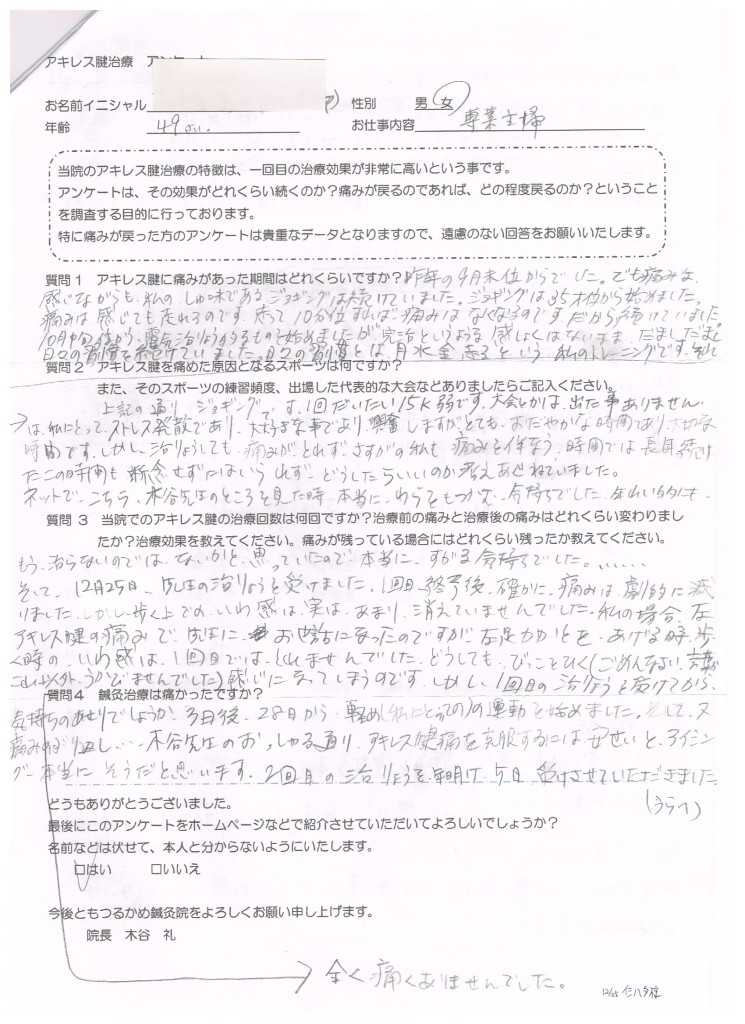 アキレス腱治療　アンケート
お名前イニシャル　性別　男　女
年齢　49さい　お仕事内容　専業主婦
当院のアキレス腱治療の特徴は、一回目の治療効果が非常に高いという事です。
アンケートは、その効果がどれくらい続くのか？痛みが戻るのであれば、どの程度戻るのか？ということ
を調査する目的に行っております。
特に痛みが戻った方のアンケートは貴重なデータとなりますので、遠慮のない回答をお願いいたします。
質問１　アキレス腱に痛みがあった期間はどれくらいですか？昨年の9月末位からでした。でも痛みは、
感じながらも、私の、しゅ味であるジョギングは続けていました。ジョギングは35才位から始めました。
痛みは感じても走れるのです。走って10分位すれば、痛みはなくなるのです。だから続けていました
10月中旬位から、電気治りょうなるものを始めましたが、完治というような感しょくはないまま、だましだまし
日々の習慣を続けていました。日々の習慣とは、月水金走るという、私のトレーニングです。それ
質問２　アキレス腱を痛めた原因となるスポーツは何ですか？
また、そのスポーツの練習頻度、出場した代表的な大会などありましたらご記入ください。
上記の通り、ジョギングです。1回だいたい15K弱です。大会とかは、出た事ありません。
→は、私にとって、ストレス発散であり、大好きな事であり、興奮しますがとても、おだやかな時間であり、大切な
時間です。しかし、治りょうしても、痛みがとれず、さすがの私も、痛みを伴なう、時間では長年続け
たこの時間も断念せずにはいられず、どうしたらいいのか考えあぐねていました。
ネットで、こちら、木谷先生のところを見た時、本当に、わらをもつかむ、気持ちでした。年れい的にも、
質問　３　当院でのアキレス腱の治療回数は何回ですか？治療前の痛みと治療後の痛みはどれくらい変わりまし
たか？治療効果を教えてください。痛みが残っている場合にはどれくらい残ったか教えてください。
もう、治らないのでは、ないかと、思っていたので、本当に、すがる気持ちでした。……
そして、12月25日、先生の治りょうを受けました。1回目終了後、確かに、痛みは、劇的に減
りました。しかし、歩く上での、いわ感は、実は、あまり、消えていませんでした。私の場合、左
アキレス腱の痛みで、先生に、お世話になったのですが、左足かかとを、あげる時、歩
く時の、いわ感は、1回目では、とれませんでした。どうしても、びっこをひく(ごめんなさい、言葉が
これ以外、うかびませんでした)感じになってしまうのです。しかし、1回目の治りょうを受けてから、
質問４　鍼灸治療は痛かったですか？
気持ちのあせりでしょうか、3日後、28日から、軽め(私にとっての)の運動を始めました。そして、又
痛みのぶり返し…、木谷先生のおっしゃる通り、アキレス腱痛を克服するには、安せいと、アイシン
グ、本当に、そうだと思います。2回目の治りょうを、年明け、5日、受けさせていただきました。
(うらへ)
どうもありがとうございました。
最後にこのアンケートをホームページなどで紹介させていただいてよろしいでしょうか？
名前などは伏せて、本人と分からないようにいたします。
□はい　□いいえ
今後ともつるかめ鍼灸院をよろしくお願い申し上げます。
院長　木谷　礼
全く痛くありませんでした。
12/25